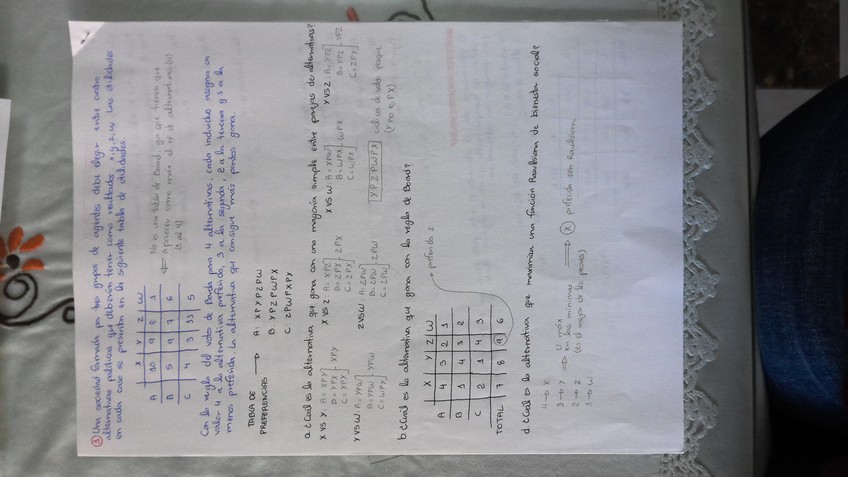 ① Una sociedad formada por tres grupos de agentes debe elegir entre cuatro
alternativas políticas que deberían tener como resultados x, y, z, w. Las utilidades
en cada caso se presentan en la siguiente tabla de utilidades.
X Y Z W
A 10 9 2 1
B 5 9 7 6
C 4 3 11 5
No es una tabla de Board, ya que tienen que
aparecer como máx el nº de alternativas (n)
(3 ó 4)
Con la regla del voto de Borda para 4 alternativas, cada individuo asigna un
valor 4 a la alternativa preferida, 3 a la segunda, 2 a la tercera y 1 a la
menos preferida. La alternativa que consigue más puntos gana.
TABLA DE
PREFERENCIAS
A: XPYPZPW
B: YPZPWPX
C: ZPWPXPY
a. ¿Cuál es la alternativa que gana con una mayoría simple entre parejas de alternativas?
X VS Y: A = XPY
B = YPX
C = XPY
XPY
X VS Z A: XPZ
B = ZPX
C = ZPX
ZPX
X VS W A = XPW
B = WPX
C = WPX
WPX
Y VS Z: A = YPZ
B = YPZ
C = ZPY
YPZ
Y VS W: A = YPW
B = YPW
C = WPY
YPW
Z VS W A: ZPW
B: ZPW
C = ZPW
ZPW
YPZPWPX
(Y no es PX)
b. ¿Cuál es la alternativa que gana con la regla de Board?
X Y Z W
A 4 3 2 1
B 1 4 3 2
C 2 1 4 3
TOTAL 7 8 9 6
→ preferida z
d. ¿Cuál es la alternativa que maximiza una función Rawlsiana de bienestar social?
4 → X
3 → Y
2 → Z
1 → W
U máx
en los mínimos
(es el mejor de los peores)
X preferida con Rawlsiana